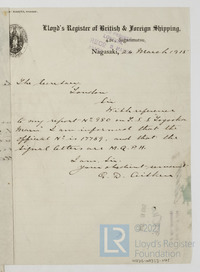 Lloyd's Register of British & Foreign Shipping.
Nagasaki, 24 March 1915
The Secretary
London
Sir
With reference
to my report No. 980 on
Maru I am informed that the
official No. is 17787, and that the
signal letters are M.Q.P.H.
I am, Sir,
Your obedient servant
©2021
Lloyd's Register
Foundation